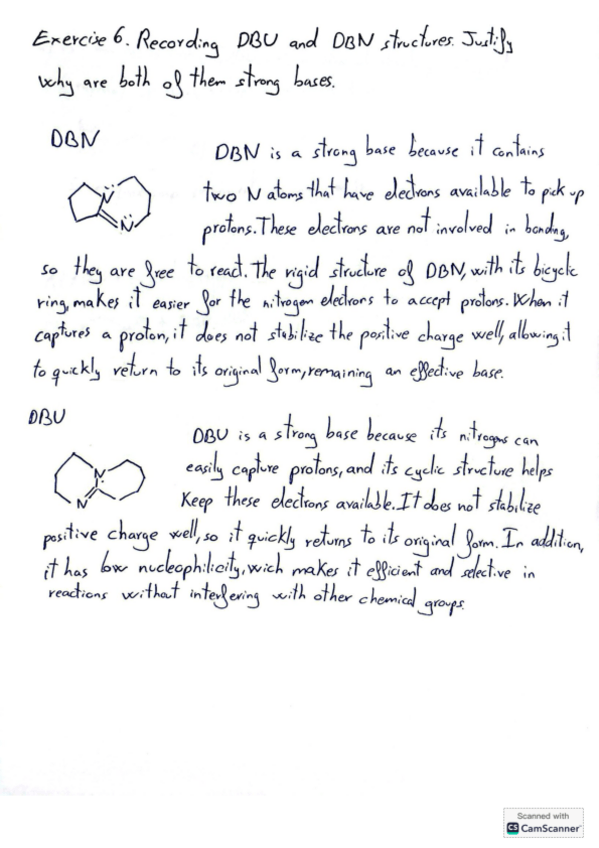 Exercise 6. Recording DBU and DBN structures. Justify
why are both of them strong bases.
DBN
DBN is a strong base because it contains
two N atoms that have electrons available to pick up
protons. These electrons are not involved in bonding,
N
N
so they are free to react. The rigid structure of DBN, with its bicyclic
ring, makes it easier for the nitrogen electrons to accept protons. When it
captures a proton, it does not stabilize the positive charge well, allowing it
to quickly return to its original form, remaining an effective base.
DBU
DBU is a strong base because its nitrogens can
easily capture protons, and its cyclic structure helps
N
N
Keep these electrons available. It does not stabilize
positive charge well, so it quickly returns to its original form. In addition,
it has low nucleophilicity, wich makes it efficient and selective in
reactions without interfering with other chemical groups.
Scanned with
CS CamScanner